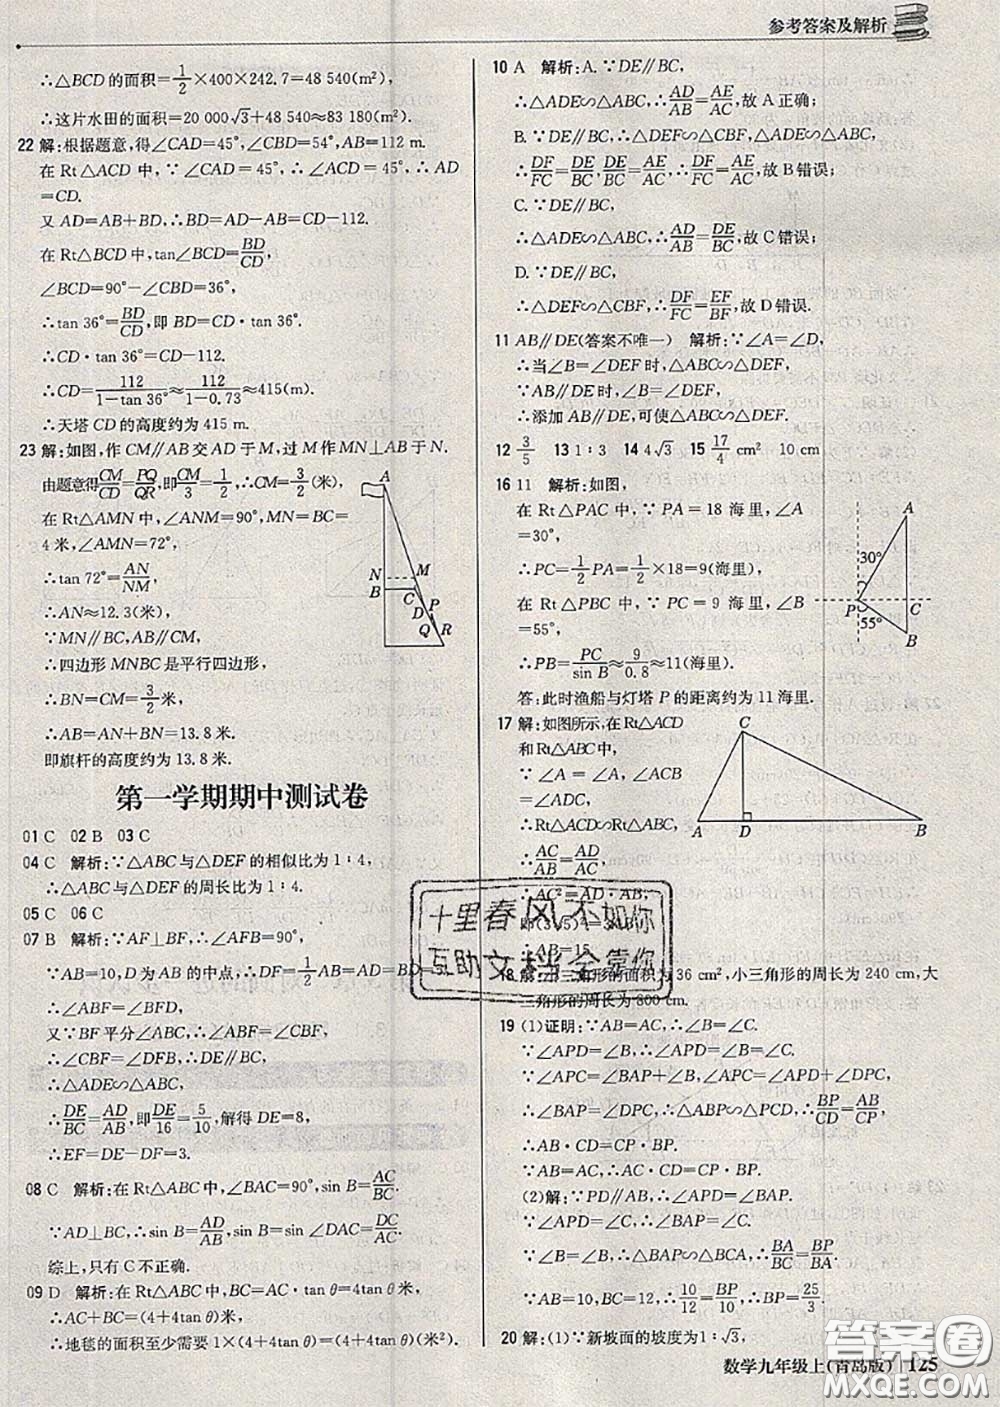 参考答案及解析
∴△BCD的面积=1/2×400×242.7=48 540(m²).
∴这片水田的面积=20 000√3+48 540≈83 180(m²).
22 解:根据题意,得∠CAD=45°,∠CBD=54°,AB=112 m.
在 Rt△ACD 中,∵∠CAD=45°,∴AD
=CD.
又 AD=AB+BD,∴BD=AD-AB=CD-112.
在 Rt△BCD 中,tan∠BCD=BD/CD,
∠BCD=90°-∠CBD=36°,
∴tan 36°=BD/CD,即 BD=CD·tan 36°.
∴CD·tan 36°=CD-112.
∴CD=112/(1-tan 36°)≈112/(1-0.73)≈415(m).
∴天塔 CD 的高度约为 415 m.
23 解:如图,作 CM∥AB 交 AD 于 M,过 M 作 MN⊥AB 于 N.
由题意得CM/CD=PQ/QR,即CM/3=1/2,∴CM=3/2(米),
在 Rt△AMN 中,∠ANM=90°,MN=BC=
4 米,∠AMN=72°,
∴tan 72°=AN/NM,
∴AN≈12.3(米),
∵MN∥BC,AB∥CM,
∴四边形 MNBC 是平行四边形,
∴BN=CM=3/2(米),
∴AB=AN+BN=13.8 米.
即旗杆的高度约为 13.8 米.
A
N
M
B
C
D
P
Q
R
第一学期期中测试卷
01 C 02 B 03 C
04 C 解析:∵△ABC与△DEF的相似比为1:4,
∴△ABC与△DEF的周长比为1:4.
05 C 06 C
07 B 解析:∵AF⊥BF,∴∠AFB=90°,
∵AB=10,D为AB的中点,∴DF=1/2AB=AD=BD=5,
∴∠ABF=∠BFD,
又∵BF平分∠ABC,∴∠ABF=∠CBF,
∴∠CBF=∠DFB,∴DE∥BC,
∴△ADE∽△ABC,
∴DE/BC=AD/AB,即DE/16=5/10,解得 DE=8,
∴EF=DE-DF=3.
08 C 解析:在 Rt△ABC 中,∠BAC=90°,sin B=AC/BC.
∵AD⊥BC,∴sin B=AD/AB,sin B=sin∠DAC=DC/AC.
综上,只有 C 不正确.
09 D 解析:在 Rt△ABC 中,BC=AC·tan θ=4tan θ米,
∴AC+BC=(4+4tan θ)米,
∴地毯的面积至少需要 1×(4+4tan θ)=(4+4tan θ)(米²).
10 A 解析:A.∵DE∥BC,
∴△ADE∽△ABC,∴AD/AB=AE/AC,故 A 正确;
B.∵DE∥BC,∴△DEF∽△CBF,△ADE∽△ABC,
∴DF/FC=DE/BC,DE/BC=AE/AC,∴DF/FC=AE/AC,故 B 错误;
C.∵DE∥BC,
∴△ADE∽△ABC,∴AD/AB=DE/BC,故 C 错误;
D.∵DE∥BC,
∴△DEF∽△CBF,∴DF/FC=EF/BF,故 D 错误.
11 AB∥DE(答案不唯一) 解析:∵∠A=∠D,
∴当∠B=∠DEF时,△ABC∽△DEF,
∵AB∥DE时,∠B=∠DEF,
∴添加AB∥DE,可使△ABC∽△DEF.
12 3/5 13 1:3 14 4√3 15 17/4 cm² 10 cm
16 11 解析:如图,
在 Rt△PAC 中,∵PA=18 海里,∠A
=30°,
∴PC=1/2PA=1/2×18=9(海里).
在 Rt△PBC 中,∵PC=9 海里,∠B
=55°,
∴PB=PC/sin B≈9/0.8≈11(海里).
答:此时渔船与灯塔 P 的距离约为 11 海里.
A
30°
P
C
55°
B
17 解:如图所示,在Rt△ACD
和Rt△ABC中,
∵∠A=∠A,∠ADC=
∠ACB,
∴Rt△ACD∽Rt△ABC,
∴AC/AB=AD/AC,
∴AC²=AD·AB,
∴AB=15.
C
A
D
B
18 解:小三角形的面积为36 cm²,小三角形的周长为240 cm,大
三角形的周长为800 cm.
19 (1)证明:∵AB=AC,∴∠B=∠C.
∵∠APD=∠B,∴∠APD=∠B=∠C.
∵∠APC=∠BAP+∠B,∠APC=∠APD+∠DPC,
∴∠BAP=∠DPC,∴△ABP∽△PCD,∴BP/CD=AB/CP,
∴AB·CD=CP·BP.
∵AB=AC,∴AC·CD=CP·BP.
(2)解:∵PD∥AB,∴∠APD=∠BAP.
∵∠APD=∠C,∴∠BAP=∠C.
∵∠B=∠B,∴△BAP∽△BCA,∴BA/BC=BP/BA.
∵AB=10,BC=12,∴10/12=BP/10,∴BP=25/3.
20 解:(1)∵新坡面的坡度为1:√3,
十里春风不如你
互助文档全靠你
答案圈
MXQE.COM
数学九年级上(青岛版) 125